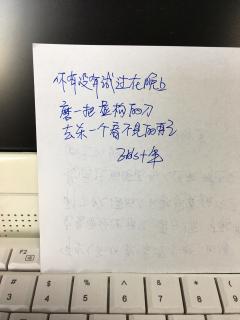 你有没有试过在
磨一把虚构的刀
去杀一个看不见的
F2
# $ % ^ & *
3 4 5 6 7 8